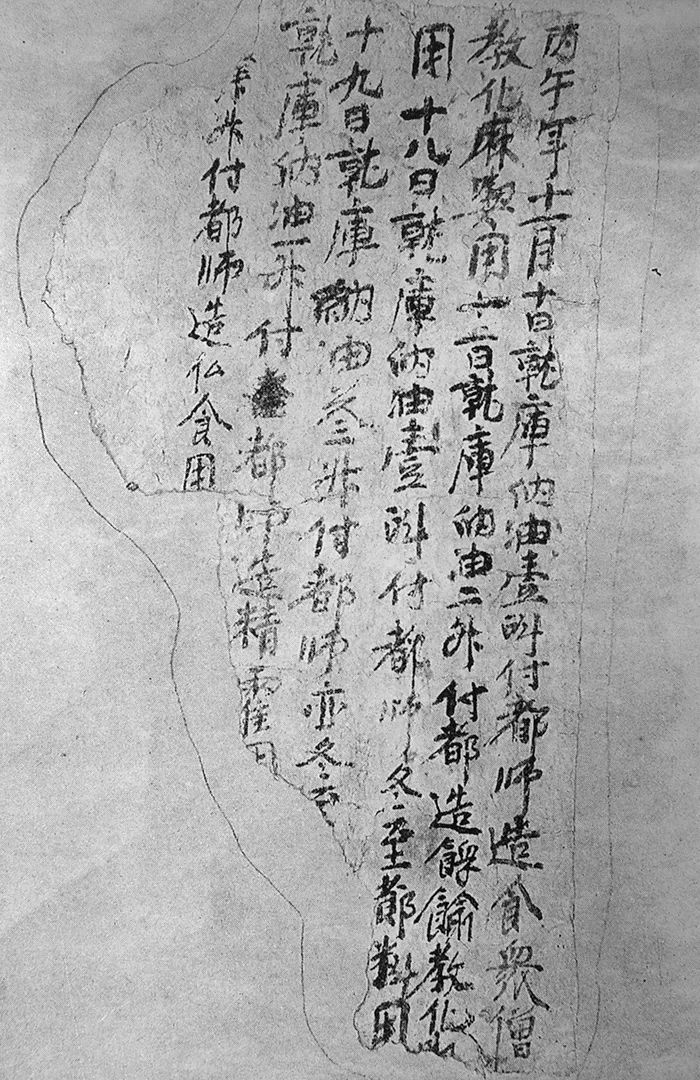 丙午年十一月十日就庫納油壹㪷付都師造食衆僧
教化麻用十二日就庫納油二升付都造餜教化
用十八日就庫納油壹㪷付都師冬至都料用
十九日就庫納油叁升付都師亦冬
就庫納油一升付都師造精用
升付都師造仏食用